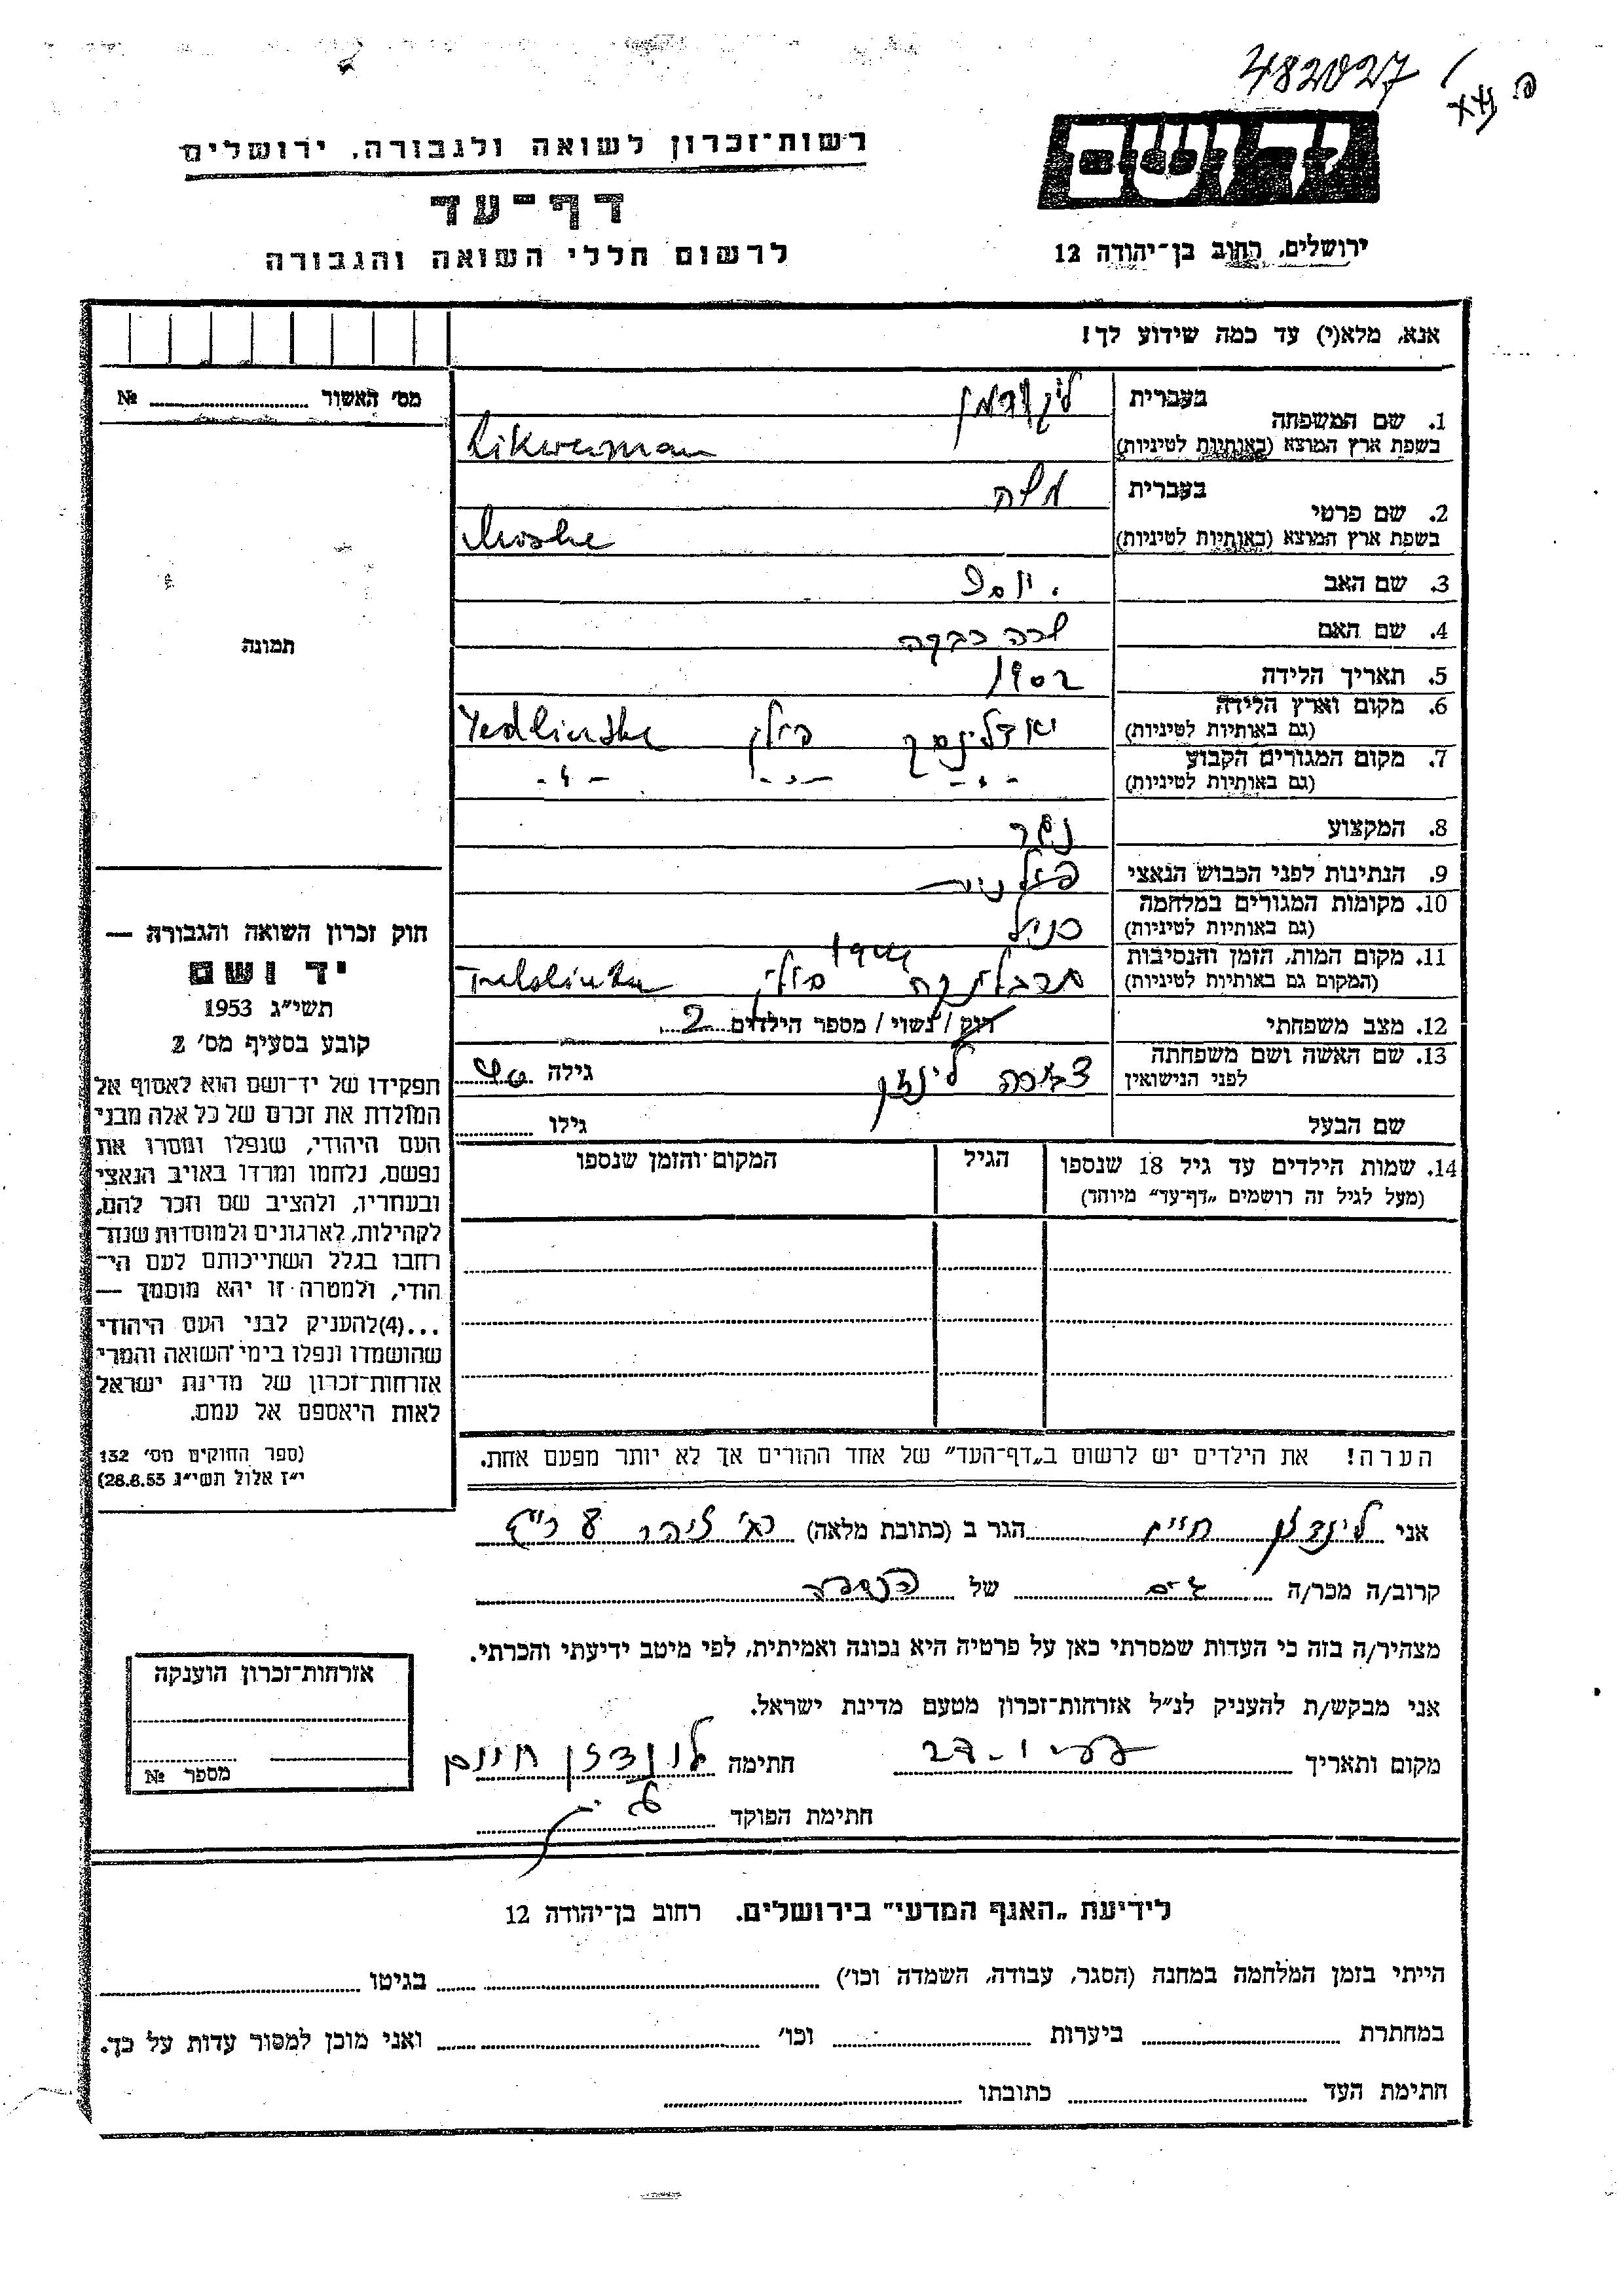 482027
יד ושם
ירושלים, רחוב בן־יהודה 12
רשות־זכרון לשואה ולגבורה, ירושלים
דף־עד
לרשום חללי השואה והגבורה
אנא, מלא(י) עד כמה שידוע לך!
מס' האשור № ..........
תמונה
חוק זכרון השואה והגבורה —
יד ושם
תשי״ג 1953
קובע בסעיף מס' 2
תפקידו של יד־ושם הוא לאסוף אל
המולדת את זכרם של כל אלה מבני
העם היהודי, שנפלו ומסרו את
נפשם, נלחמו ומרדו באויב הנאצי
ובעוזריו, ולהציב שם וזכר להם,
לקהילות, לארגונים ולמוסדות שנח־
רבו בגלל השתייכותם לעם הי־
הודי, ולמטרה זו יהא מוסמך —
...(4) להעניק לבני העם היהודי
שהושמדו ונפלו בימי השואה והמרי
אזרחות־זכרון של מדינת ישראל
לאות היאספם אל עמם.
(ספר החוקים מס' 132
י״ז אלול תשי״ג 28.8.53)
1. שם המשפחה בעברית ליקורמן
בשפת ארץ המוצא (באותיות לטיניות) Likwerman
2. שם פרטי בעברית משה
בשפת ארץ המוצא (באותיות לטיניות) Moshe
3. שם האב יוסף
4. שם האם שרה רבקה
5. תאריך הלידה 1902
6. מקום וארץ הלידה (גם באותיות לטיניות) יאדלינסק פולין Yedlinske
7. מקום המגורים הקבוע (גם באותיות לטיניות) -"- -"- -"-
8. המקצוע נגר
9. הנתינות לפני הכבוש הנאצי פולנית
10. מקומות המגורים במלחמה (גם באותיות לטיניות) כנ״ל
11. מקום המות, הזמן והנסיבות (המקום גם באותיות לטיניות) טרבלינקה פולין Treblinka
12. מצב משפחתי רווק / נשוי / מספר הילדים 2
13. שם האשה ושם משפחתה לפני הנישואין לינדזן גילה
שם הבעל גילו ..........
14. שמות הילדים עד גיל 18 שנספו הגיל המקום והזמן שנספו
(מעל לגיל זה רושמים „דף־עד״ מיוחד)
הערה! את הילדים יש לרשום ב„דף־העד״ של אחד ההורים אך לא יותר מפעם אחת.
אני לינדזן חיים הגר ב (כתובת מלאה)
קרוב/ה מכר/ה גיס של
מצהיר/ה בזה כי העדות שמסרתי כאן על פרטיה היא נכונה ואמיתית, לפי מיטב ידיעתי והכרתי.
אני מבקש/ת להעניק לנ״ל אזרחות־זכרון מטעם מדינת ישראל.
מקום ותאריך חתימה לינדזן חיים
חתימת הפוקד
אזרחות־זכרון הוענקה
מספר №
לידיעת „האגף המדעי״ בירושלים. רחוב בן־יהודה 12
הייתי בזמן המלחמה במחנה (הסגר, עבודה, השמדה וכו') .......... בגיטו ..........
במחתרת .......... ביערות .......... וכו' .......... ואני מוכן למסור עדות על כך.
חתימת העד .......... כתובתו ..........